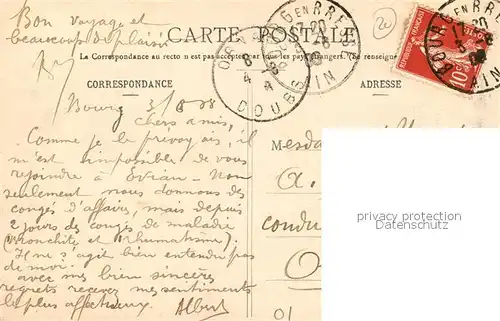 Bon voyage et
beaucoup de plaisir
CARTE POSTALE
La Correspondance au recto n'est pas acceptée par tous les pays étrangers. (Se renseigner
CORRESPONDANCE
ADRESSE
Bourg 3/8/08
Chers amis,
Comme je le prévoyais, il
m'est impossible de vous
rejoindre à Evian. Non
seulement nous donnons des
congés d'affaires, mais depuis
2 jours des congés de maladie
(bronchite et rhumatisme).
de moi.
avec mes bien sincères
regrets recevez mes sentiments
les plus affectueux. Albert
Mesda
a.
condu
O
01
DOUBS
BOURG EN BRESSE
AIN
10
privacy protection
Datenschutz